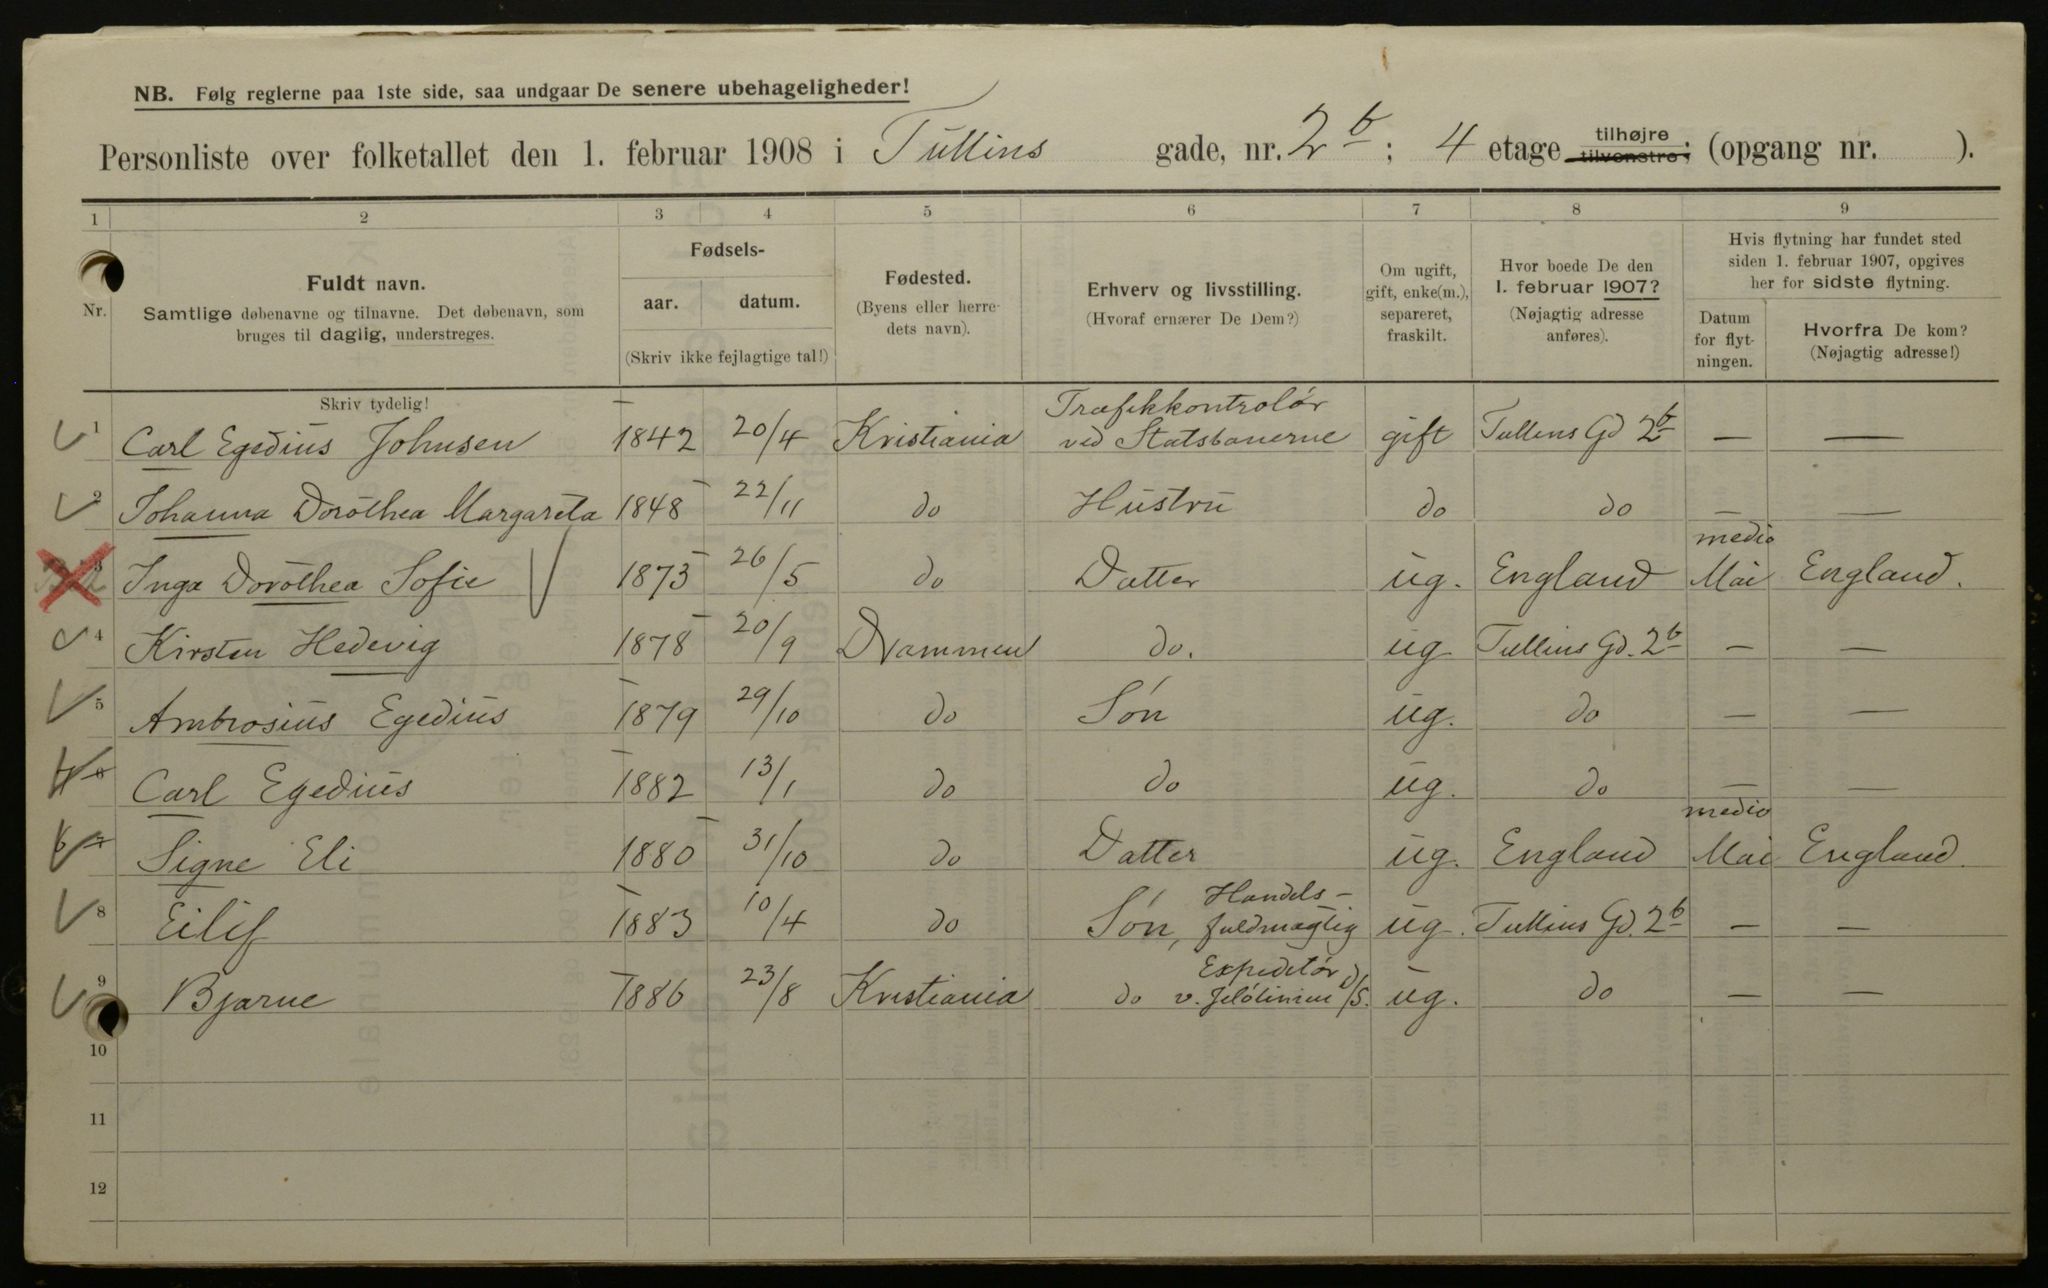 NB. Følg reglerne paa 1ste side, saa undgaar De senere ubehageligheder!
Personliste over folketallet den 1. februar 1908 i Tullins gade, nr. 2b; 4 etage tilhøjre tilvenstre; (opgang nr. ).
1 2 3 4 5 6 7 8 9
Nr.
Fuldt navn.
Samtlige døbenavne og tilnavne. Det døbenavn, som
bruges til daglig, understreges.
Skriv tydelig!
Fødsels-
aar. datum.
(Skriv ikke fejlagtige tal!)
Fødested.
(Byens eller herre-
dets navn).
Erhverv og livsstilling.
(Hvoraf ernærer De Dem?)
Om ugift,
gift, enke(m.),
separeret,
fraskilt.
Hvor boede De den
1. februar 1907?
(Nøjagtig adresse
anføres).
Hvis flytning har fundet sted
siden 1. februar 1907, opgives
her for sidste flytning.
Datum
for flyt-
ningen.
Hvorfra De kom?
(Nøjagtig adresse!)
1 Carl Egedius Johnsen 1842 20/4 Kristiania Trafikkontrolör ved Statsbanerne gift Tullins Gd 2b — —
2 Johanna Dorothea Margareta 1848 22/11 do Hustru do do — —
3 Inga Dorothea Sofie 1873 26/5 do Datter ug. England medio Mai England.
4 Kirsten Hedevig 1878 20/9 Drammen do. ug Tullins Gd. 2b — —
5 Ambrosius Egedius 1879 29/10 do Sön ug. do — —
6 Carl Egedius 1882 13/1 do do ug. do — —
7 Signe Eli 1880 31/10 do Datter ug. England medio Mai England.
8 Eilif 1883 10/4 do Sön, Handels-fuldmægtig ug. Tullins Gd. 2b — —
9 Bjarne 1886 23/8 Kristiania do Expeditör v. D/S. ug. do — —
10
11
12